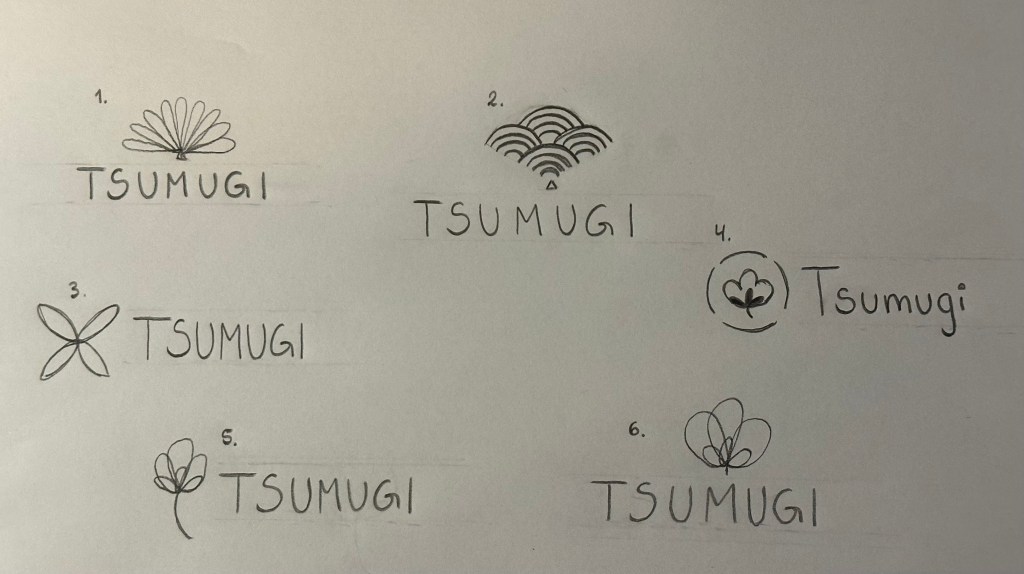 1.
TSUMUGI
2.
TSUMUGI
3.
TSUMUGI
4.
Tsumugi
5.
TSUMUGI
6.
TSUMUGI